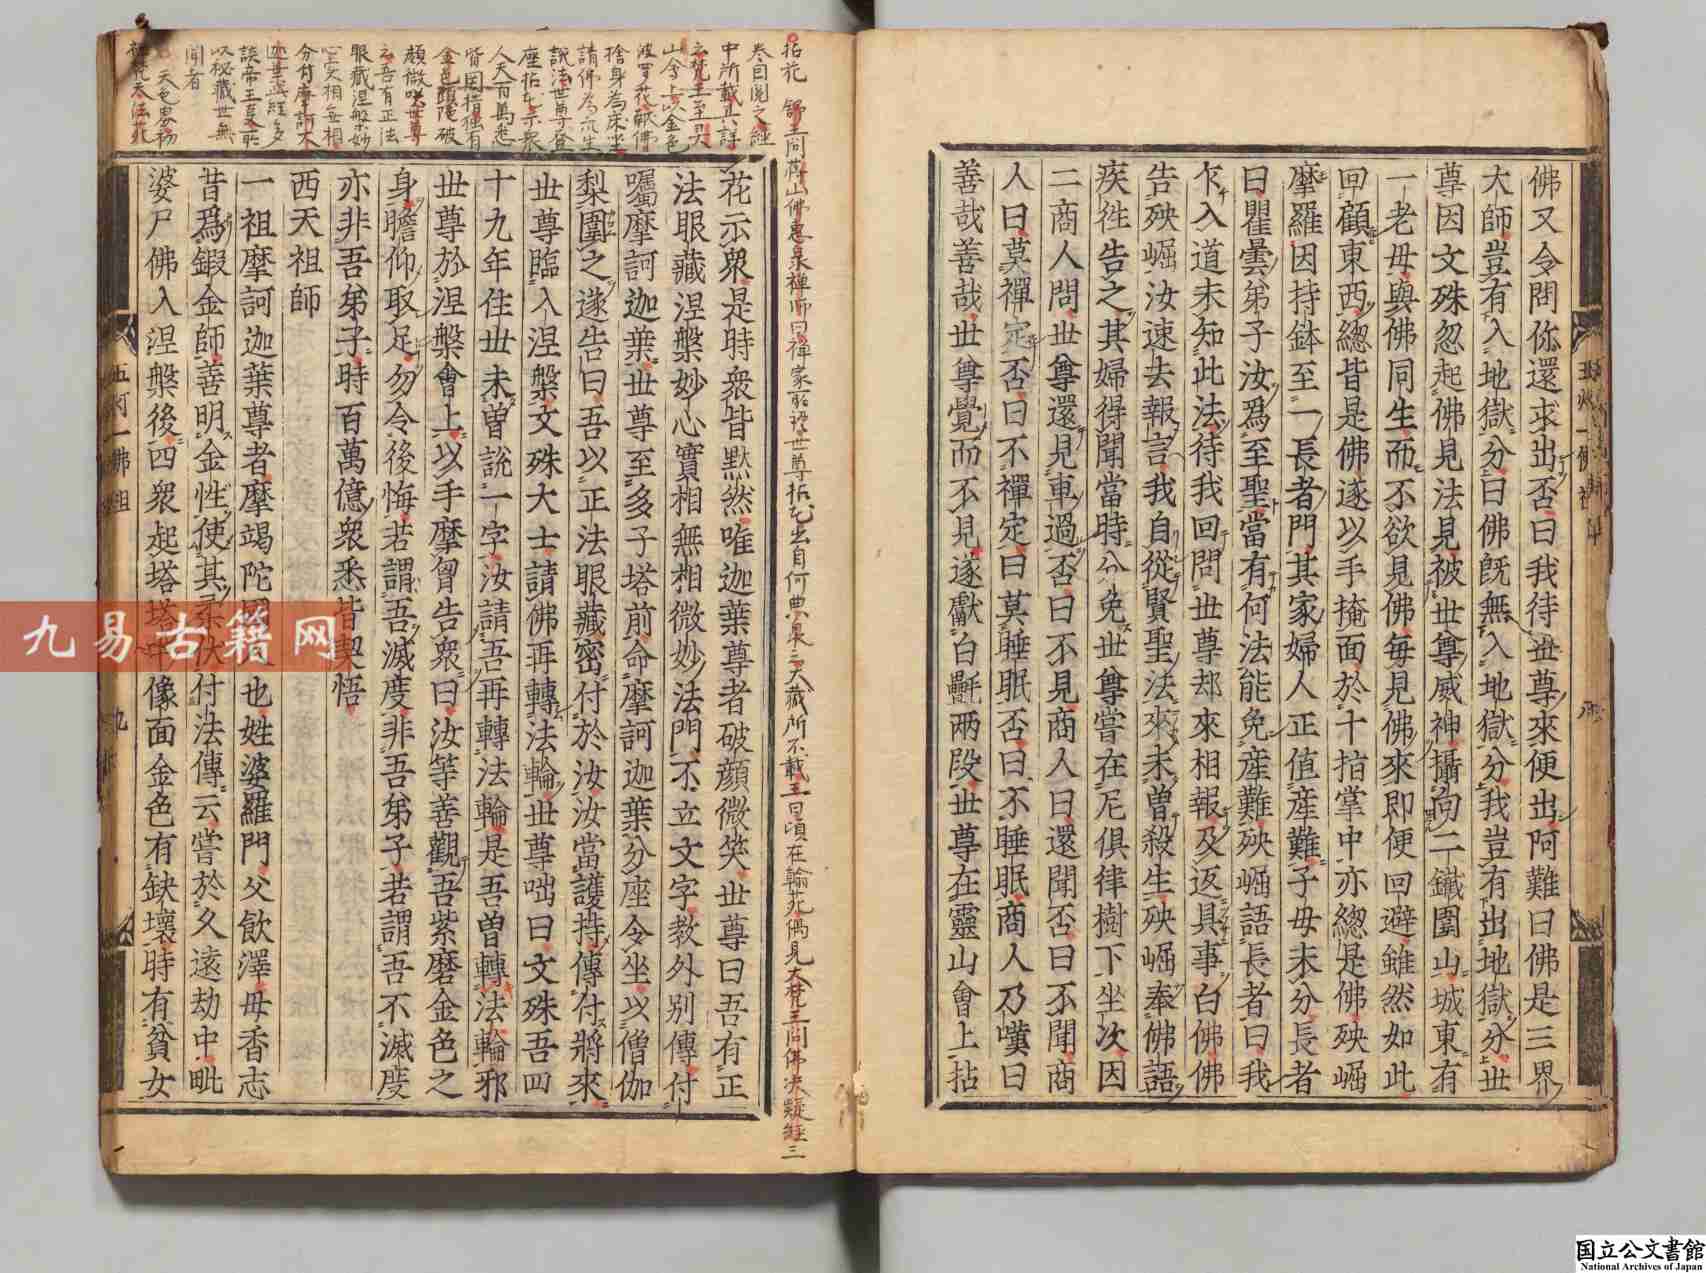 佛又令問你還求出否曰我待世尊來便出阿難曰佛是三界
大師豈有入地獄分曰佛旣無入地獄分我豈有出地獄分世
尊因文殊忽起佛見法見被世尊威神攝向二鐵圍山城東有
一老母與佛同生而不欲見佛每見佛來即便回避雖然如此
回顧東西總皆是佛遂以手掩面於十指掌中亦總是佛殃崛
摩羅因持鉢至一長者門其家婦人正值産難子母未分長者
曰瞿曇弟子汝爲至聖當有何法能免産難殃崛語長者曰我
乍入道未知此法待我回問世尊却來相報及返具事白佛佛
告殃崛汝速去報言我自從賢聖法來未曾殺生殃崛奉佛語
疾徃告之其婦得聞當時分免世尊嘗在尼俱律樹下坐次因
二商人問世尊還見車過否曰不見商人曰還聞否曰不聞商
人曰莫禪定否曰不禪定曰莫睡眠否曰不睡眠商人乃嘆曰
善哉善哉世尊覺而不見遂獻白㲲兩段世尊在靈山會上拈
拈花 舒王問蔣山佛惠泉禅師曰禅家所语世尊拈花出自何典泉云大藏所不載王曰頃在翰苑偶見大梵王問佛决疑經三
卷因閲之經
中所載甚詳
云梵王至靈
山會上以金色
波罗花献佛
捨身為床坐
請佛為衆生
說法世尊登
座拈花示衆
人天百萬悉
皆罔措独有
金色頭陀破
顔微咲世尊
云吾有正法
眼藏涅槃妙
心实相無相
分付摩訶大
迦葉此經多
談帝王事所
以秘藏世無
聞者
花示衆是時衆皆默然唯迦葉尊者破顔微笑世尊曰吾有正
法眼藏涅槃妙心實相無相微妙法門不立文字教外別傳付
囑摩訶迦葉世尊至多子塔前命摩訶迦葉分座令坐以僧伽
梨圍之遂告曰吾以正法眼藏密付於汝汝當護持傳付將來
世尊臨入涅槃文殊大士請佛再轉法輪世尊咄曰文殊吾四
十九年住世未曾說一字汝請吾再轉法輪是吾曾轉法輪邪
世尊於涅槃會上以手摩胷告衆曰汝等善觀吾紫磨金色之
身瞻仰取足勿令後悔若謂吾滅度非吾弟子若謂吾不滅度
亦非吾弟子時百萬億衆悉皆契悟
西天祖師
一祖摩訶迦葉尊者摩竭陀國人也姓婆羅門父飲澤母香志
昔爲鍜金師善明金性使其柔伏付法傳云嘗於久遠劫中毗
婆尸佛入涅槃後四衆起塔塔中像面金色有缺壞時有貧女
五灯一佛祖
九
九易古籍网
国立公文書館
National Archives of Japan